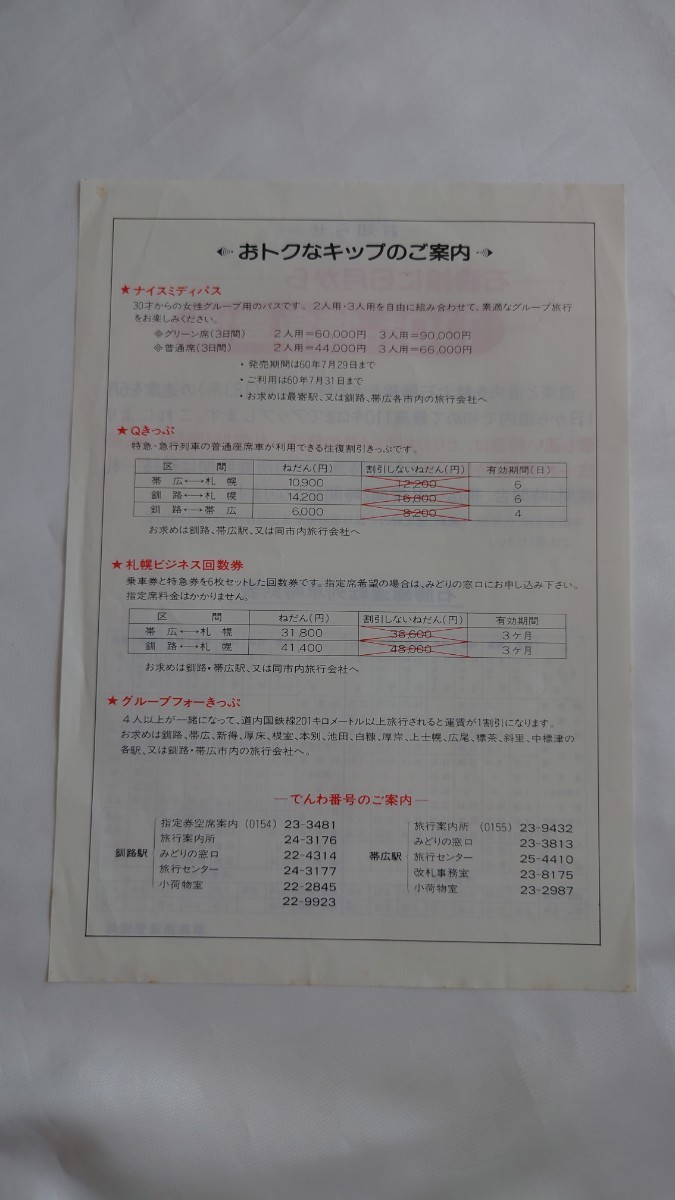 おトクなキップのご案内
★ナイスミディパス
30才からの女性グループ用のパスです。2人用・3人用を自由に組み合わせて、素適なグループ旅行
をお楽しみください。
※グリーン席(3日間) 2人用=60,000円 3人用=90,000円
※普通席(3日間) 2人用=44,000円 3人用=66,000円
・発売期間は60年7月29日まで
・ご利用は60年7月31日まで
・お求めは最寄駅、又は釧路、帯広各市内の旅行会社へ
★Qきっぷ
特急・急行列車の普通座席車が利用できる往復割引きっぷです。
区 間 ねだん(円) 割引しないねだん(円) 有効期間(日)
帯広←→札幌 10,900 12,200 6
釧路←→札幌 14,200 16,000 6
釧路←→帯広 6,000 8,200 4
お求めは釧路、帯広駅、又は同市内旅行会社へ
★札幌ビジネス回数券
乗車券と特急券を6枚セットした回数券です。指定席希望の場合は、みどりの窓口にお申し込み下さい。
指定席料金はかかりません。
区 間 ねだん(円) 割引しないねだん(円) 有効期間
帯広←→札幌 31,800 36,600 3ヶ月
釧路←→札幌 41,400 48,000 3ヶ月
お求めは釧路・帯広駅、又は同市内旅行会社へ
★グループフォーきっぷ
4人以上が一緒になって、道内国鉄線201キロメートル以上旅行されると運賃が1割引になります。
お求めは釧路、帯広、新得、厚床、根室、本別、池田、白糠、厚岸、上士幌、広尾、標茶、斜里、中標津の
各駅、又は釧路・帯広市内の旅行会社へ。
―でんわ番号のご案内―
釧路駅
指定券空席案内 (0154) 23-3481
旅行案内所 24-3176
みどりの窓口 22-4314
旅行センター 24-3177
小荷物室 22-2845
22-9923
帯広駅
旅行案内所 (0155) 23-9432
みどりの窓口 23-3813
旅行センター 25-4410
改札事務室 23-8175
小荷物室 23-2987